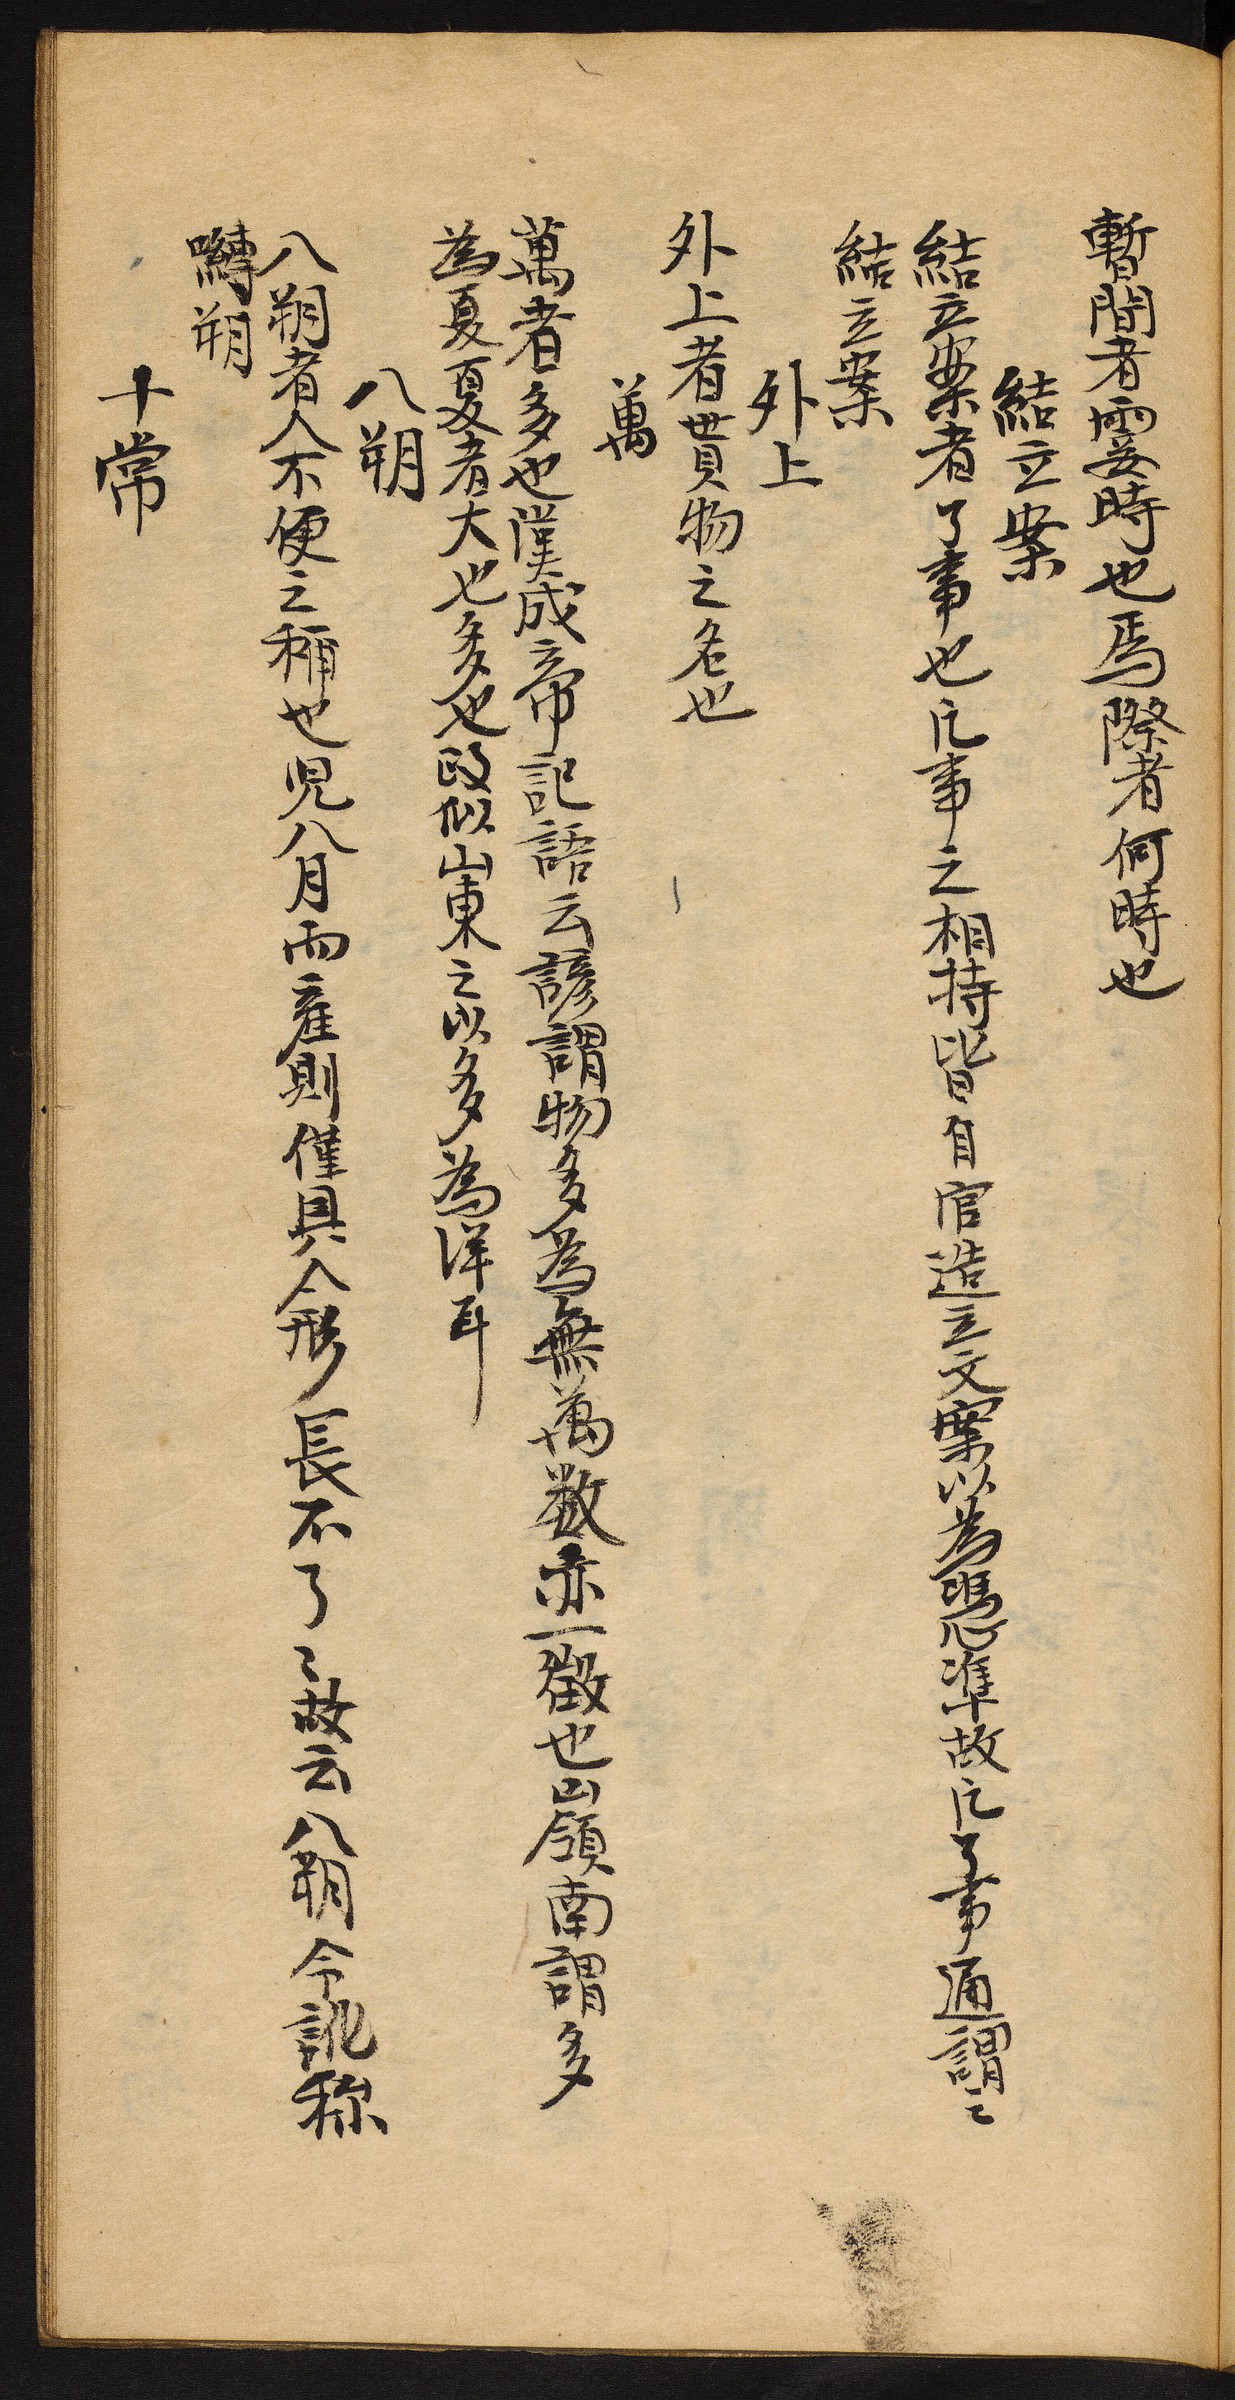 暫間者霎時也焉際者何時也
結立案
結立案者了事也凡事之相持皆自官造立文案以為憑準故凡了事通謂之
結立案
外上
外上者貰物之名也
萬
萬者多也漢成帝記語云諺謂物多為無萬数亦一徵也山嶺南謂多
為夏夏者大也多也政似山東之以多為洋耳
八朔
八朔者人不便之稱也兒八月而產則僅具人形長不了〻故云八朔今訛称
囀朔
十常